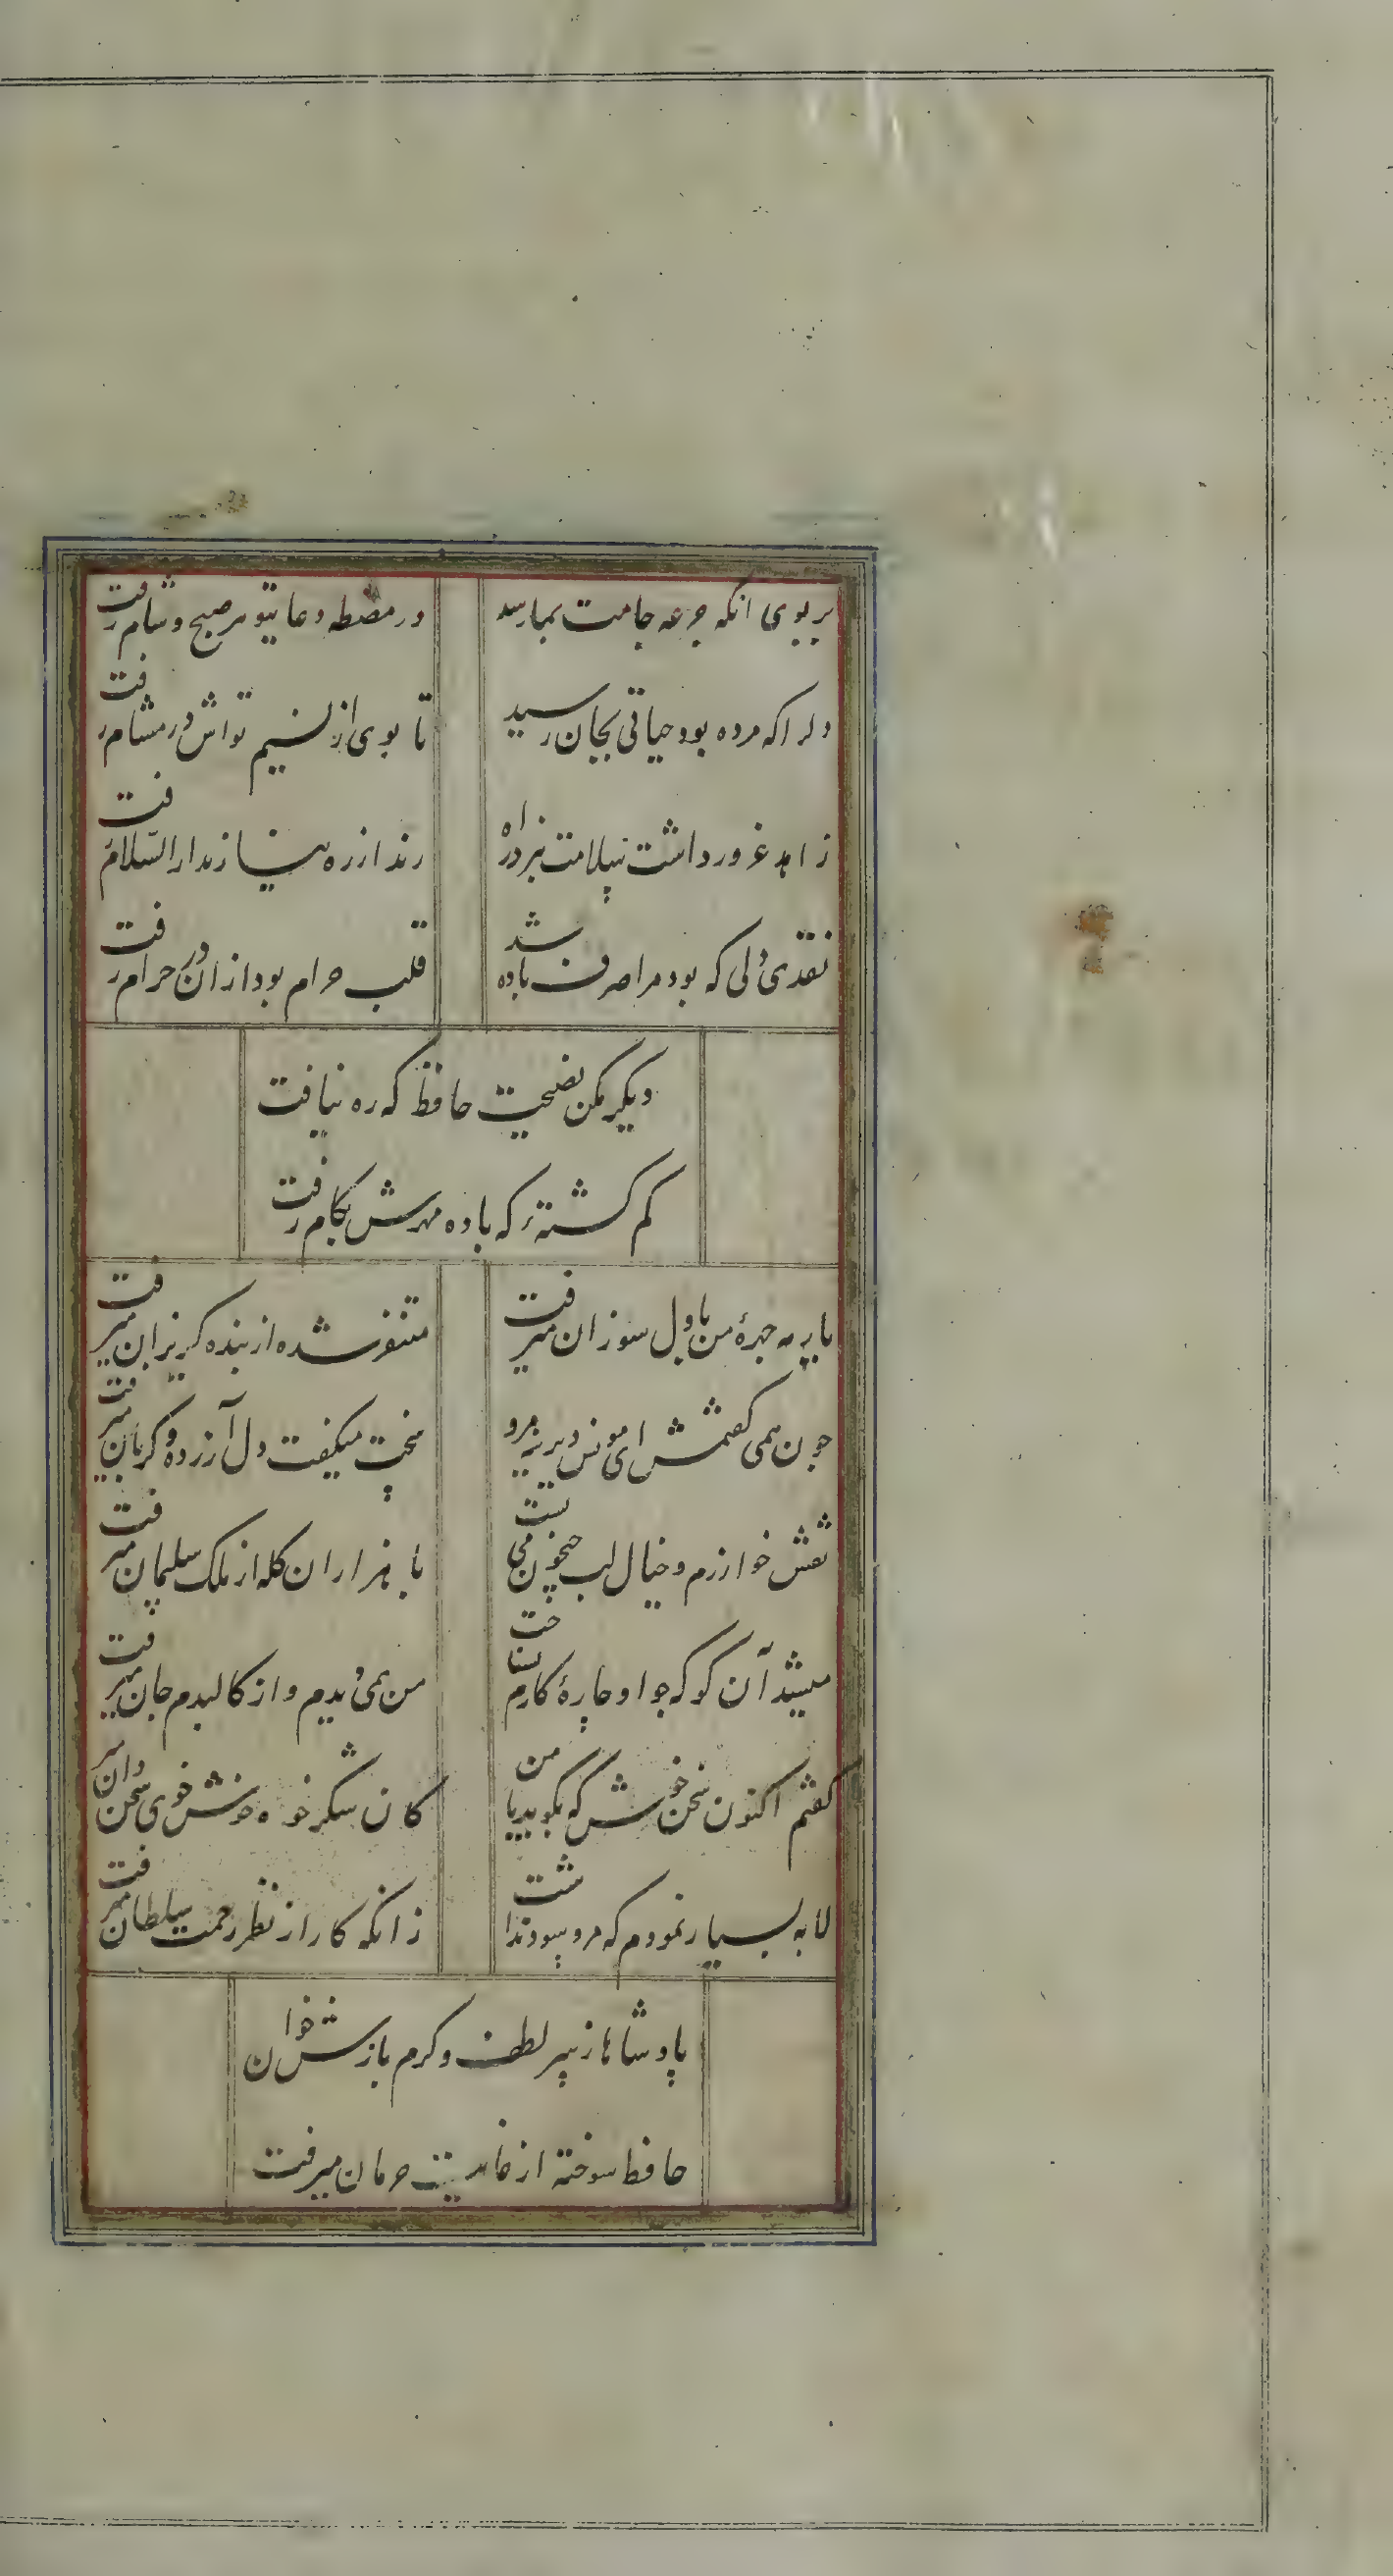 بر بوی انکه جرعه جامت بما رسد
در مصطبه دعا یتو هر صبح و شام رفت
دلرا که مرده بود حیاتی بجان رسید
تا بوی از نسیم تواش در مشام رفت
زاهد غرور داشت سلامت نبرد راه
رند از ره نیاز بدار السلام رفت
نقدی دلی که بود مرا صرف باده شد
قلب حرام بود از ان در حرام رفت
دیکر مکن نصیحت حافظ که ره نیافت
کم کشتهٔ که باده مهرش بکام رفت
یا رب چهرهٔ من با دل سوزان میرفت
متنفر شده از بنده کریزان میرفت
چون همی کفتمش ای مونس دیرینه مرو
سخت میکفت و دل آزرده و کریان میرفت
نقش خوارزم و خیال لب جیحون می بست
با هزاران کله از ملک سلیمان میرفت
میشد آن کو که جو او چارهٔ کارم نشناخت
من همی دیدم و از کالبدم جان میرفت
کفتم اکنون سخن خوش که بکوید با من
کان شکر خوه خوش خوی سخن دان میر
لابه بسیار نمودم که مرو سود نداشت
زانکه کار از نظر رحمت سلطان میرفت
پادشاها ز سر لطف و کرم بازش خوان
حافظ سوخته از غایت حرمان میرفت